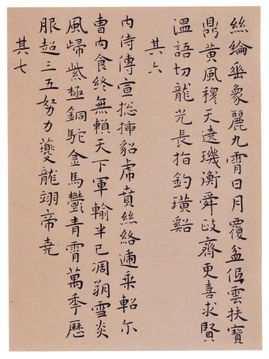 絲綸垂象麗九霄日月覆盆低雲扶寶
鼎黃風穆天遠璣衡舜政齊更喜求賢
溫語切龍光長指釣璜谿
其六
內侍傳宣總插貂虎賁絲絡遍乘軺尔
曹肉食終無賴天下軍輸半已凋朔雪炎
風歸紫極銅駝金馬鬱青霄萬季歷
服超三五努力夔龍翊帝堯
其七